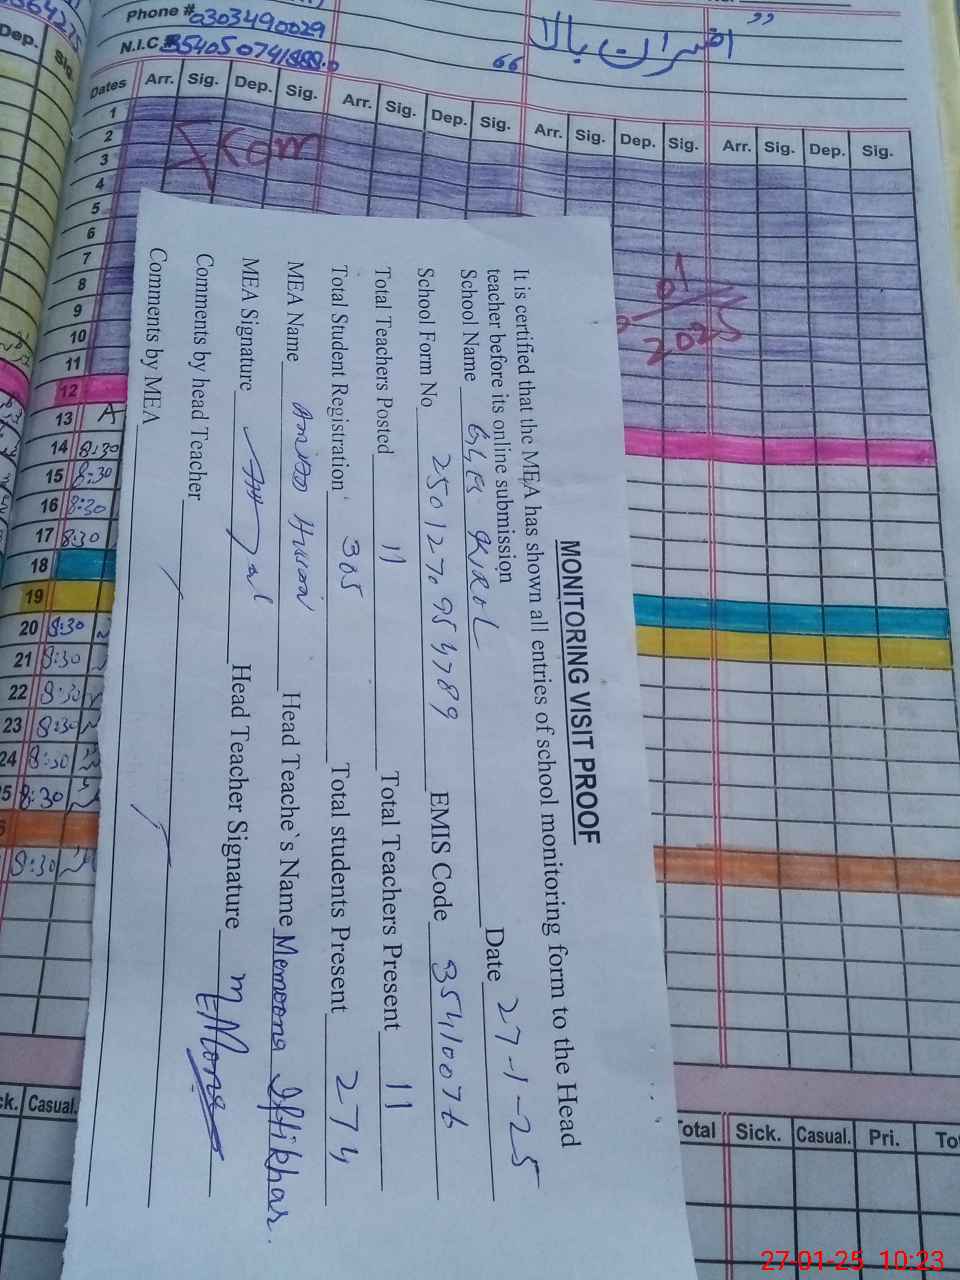 Phone # 03034190029
N.I.C #
افسران بالا
Dates Arr. Sig. Dep. Sig. Arr. Sig. Dep. Sig. Arr. Sig. Dep. Sig. Arr. Sig. Dep. Sig.
Dep. Sig.
1
2
3
4
5
6
7
8
9
10
11
12
13 A
14 8:30
15 8:30
16 8:30
17 8:30
18
19
20 8:30
21 8:30
22 8:30
23 8:30
24 8:30
5 8:30
8:30
2025
MONITORING VISIT PROOF
It is certified that the MEA has shown all entries of school monitoring form to the Head
teacher before its online submission
School Name Date 27-1-25
School Form No 2501270954789 EMIS Code 35410076
Total Teachers Posted 11 Total Teachers Present 11
Total Student Registration 305 Total students Present 274
MEA Name Head Teache`s Name Memoona Iftikhar.
MEA Signature Head Teacher Signature
Comments by head Teacher
Comments by MEA
ck. Casual.
Total Sick. Casual. Pri. To
27-01-25 10:23